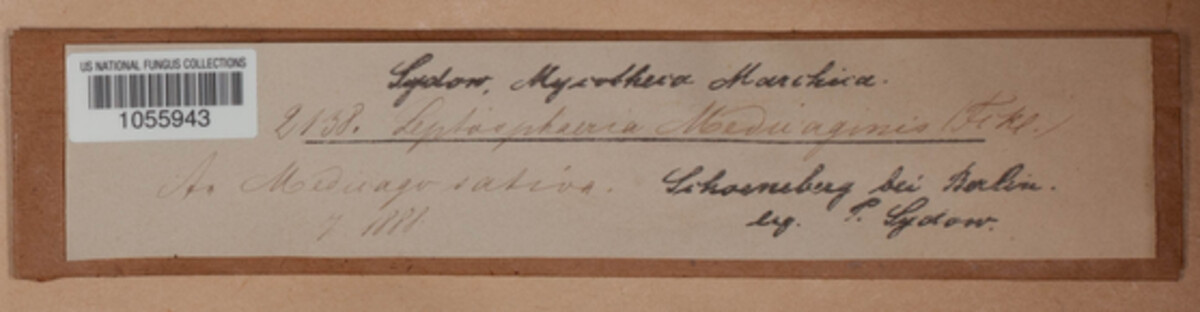 US NATIONAL FUNGUS COLLECTIONS
1055943
Sydow, Mycotheca Marchica.
2138. Leptosphaeria Medicaginis (Fckl.)
An Medicago sativa. Schoeneberg bei Berlin.
7 1888 leg. P. Sydow.